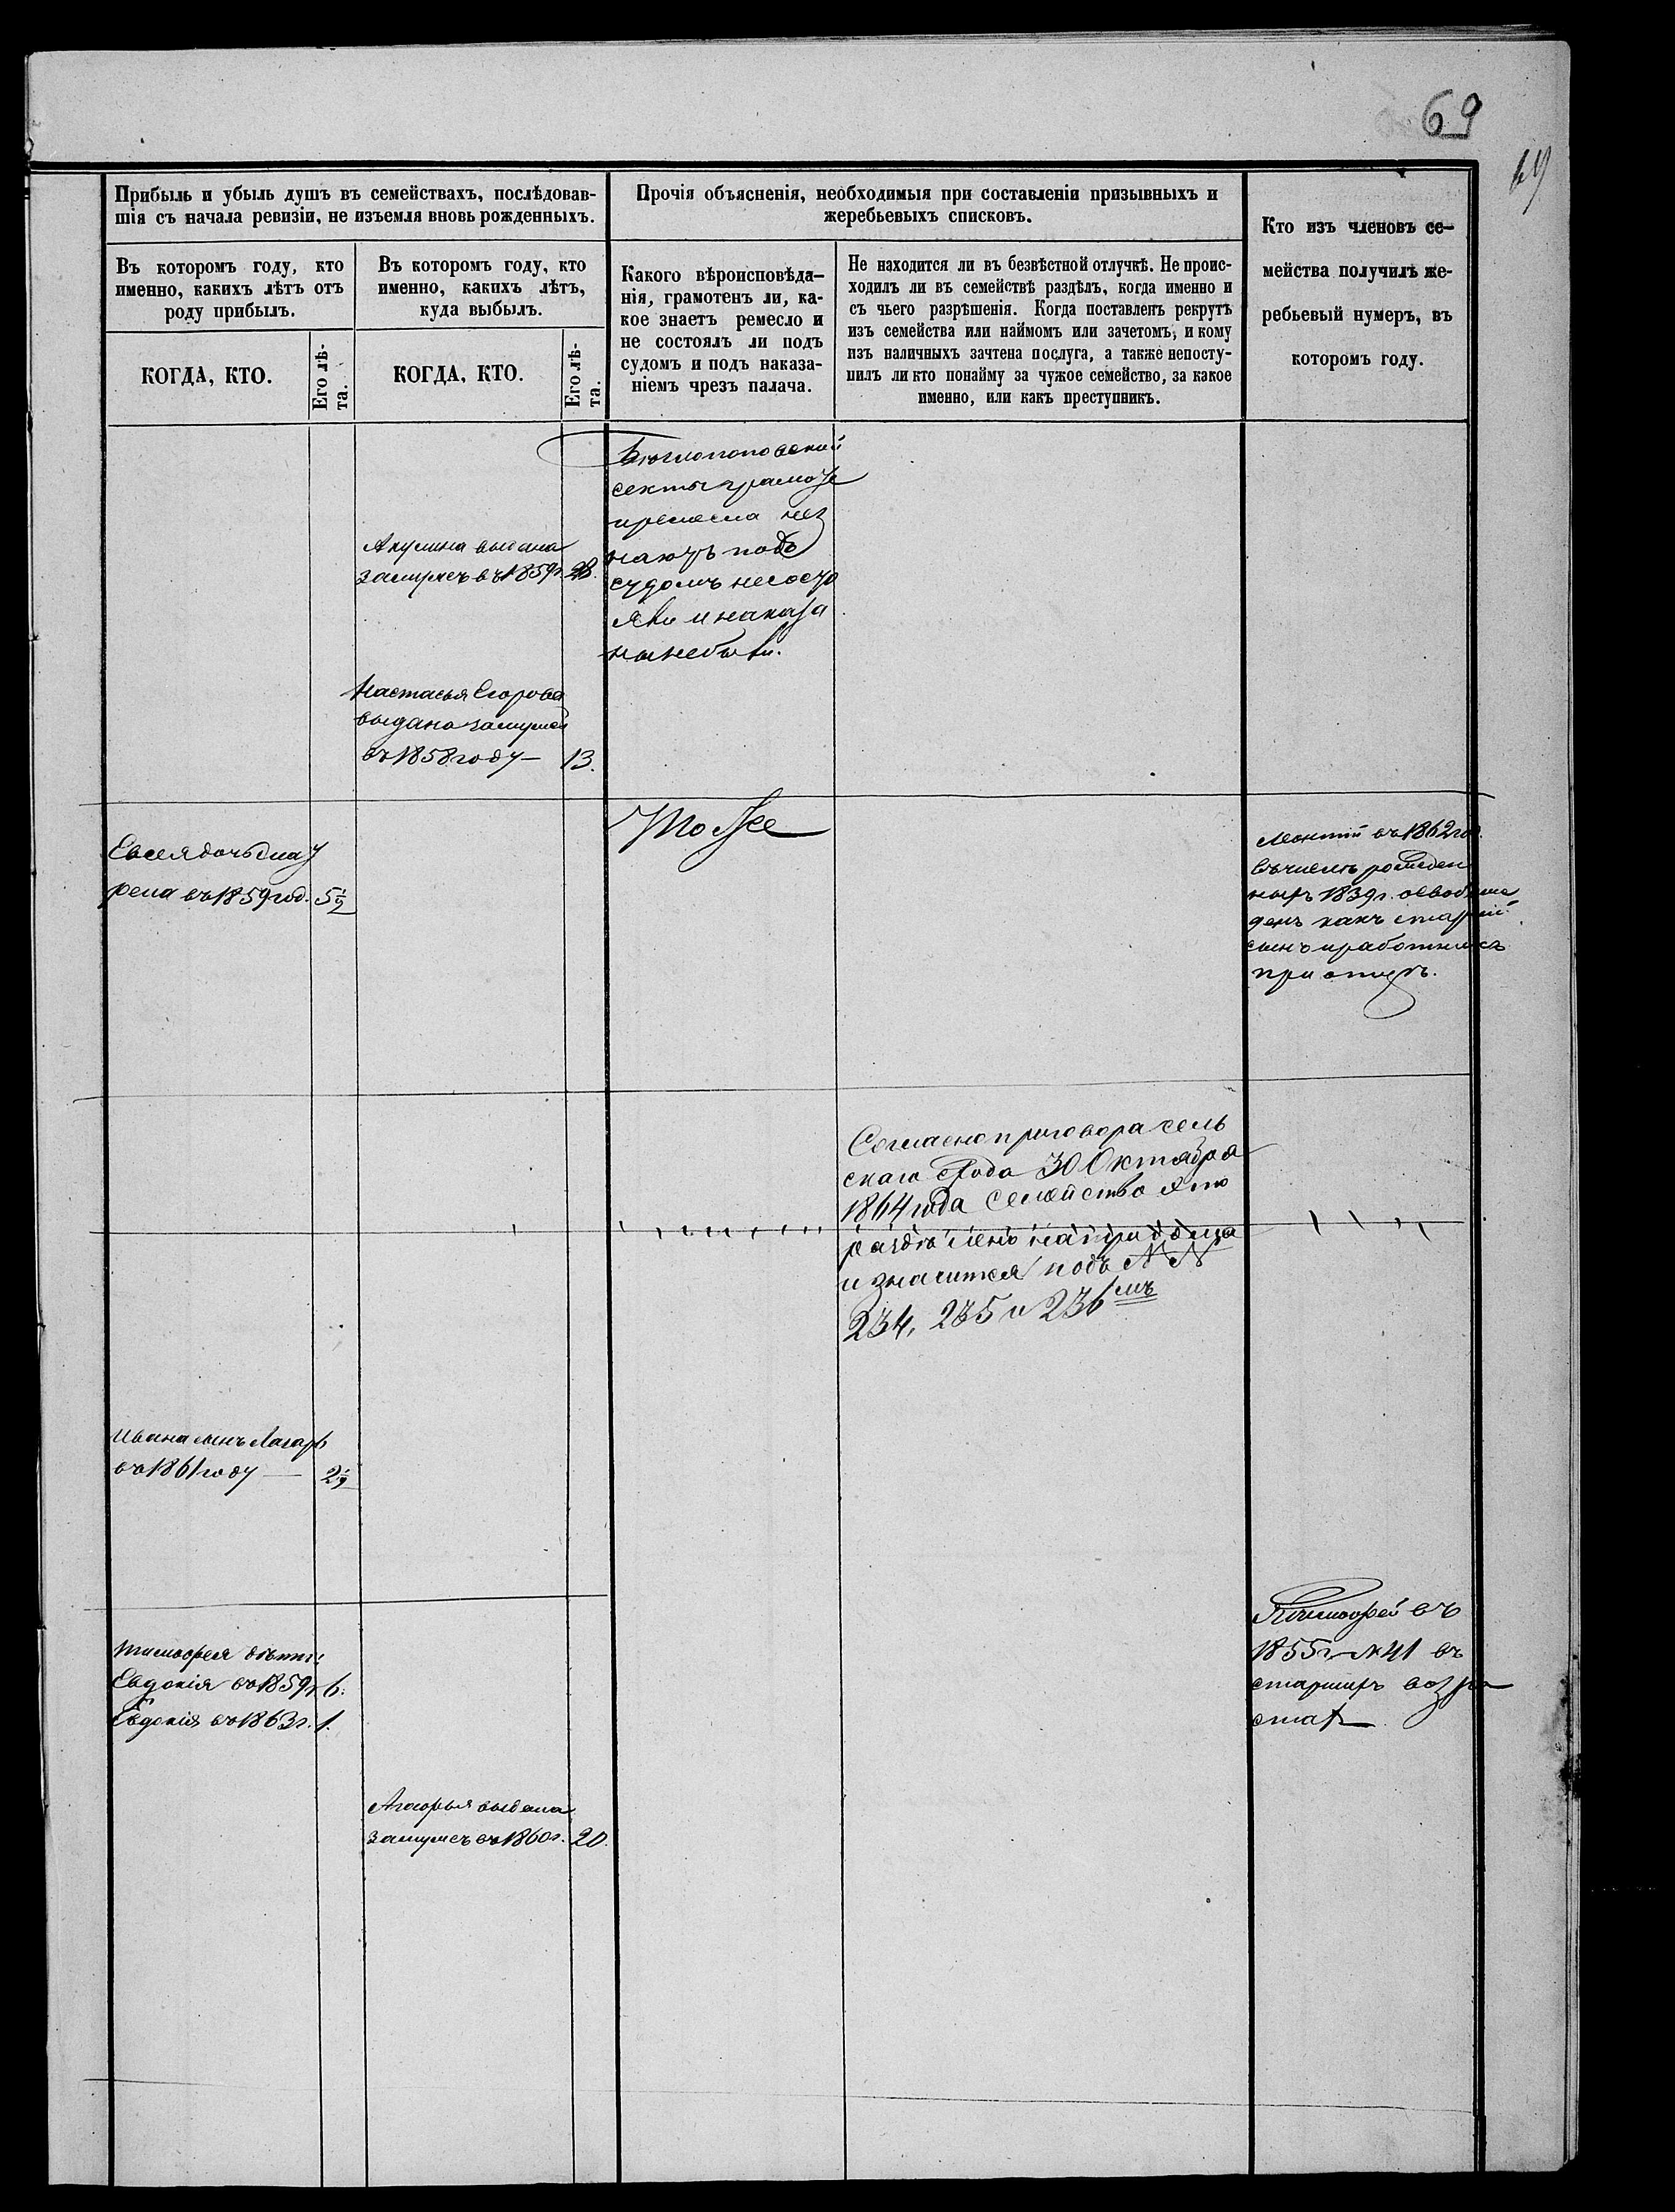 69
69
Прибыль и убыль душъ въ семействахъ, послѣдовав-
шія съ начала ревизіи, не изъемля вновь рожденныхъ.
Прочія объясненія, необходимыя при составленіи призывныхъ и
жеребьевыхъ списковъ.
Кто изъ членовъ се-
мейства получилъ же-
ребьевый нумеръ, въ
которомъ году.
Въ которомъ году, кто
именно, какихъ лѣтъ отъ
роду прибылъ.
Въ которомъ году, кто
именно, какихъ лѣтъ,
куда выбылъ.
Какого вѣроисповѣда-
нія, грамотенъ ли, ка-
кое знаетъ ремесло и
не состоялъ ли подъ
судомъ и подъ наказа-
ніемъ чрезъ палача.
Не находится ли въ безвѣстной отлучкѣ. Не проис-
ходилъ ли въ семействѣ раздѣлъ, когда именно и
съ чьего разрѣшенія. Когда поставленъ рекрутъ
изъ семейства или наймомъ или зачетомъ, и кому
изъ наличныхъ зачтена послуга, а также непосту-
пилъ ли кто понайму за чужое семейство, за какое
именно, или какъ преступникъ.
КОГДА, КТО.
Его лѣ-
та.
КОГДА, КТО.
Его лѣ-
та.
секты грамоте
и ремесла нез
наютъ подъ
судомъ несосто
яли и наказа
ны небыли.
Акулина выдана
замужъ въ 1859г.
Настасья Егорова
выдана замужъ
въ 1858 году — 13.
Тоже
Евсея дочь Мав
рена въ 1859 год. 5½
Леонтій въ 1862 год.
въ числѣ рожден
ныхъ 1839 г. освобож
денъ какъ старшій
сынъ и работникъ
при отцѣ.
Согласно приговора сель
скаго схода 30 Октября
1864 года семейство это
раздѣлено на три дома
и значится подъ №№
234, 235 и 236мъ
Ивана сынъ Лазарь
въ 1861 году — 2½
Тимофея дѣти:
Евдокія въ 1859г. 6.
Евдокія въ 1863г. 1.
Тимофей въ
1855г. № 41 въ
старшемъ возра
стѣ
Агафья выдана
замужъ въ 1860г. 20.